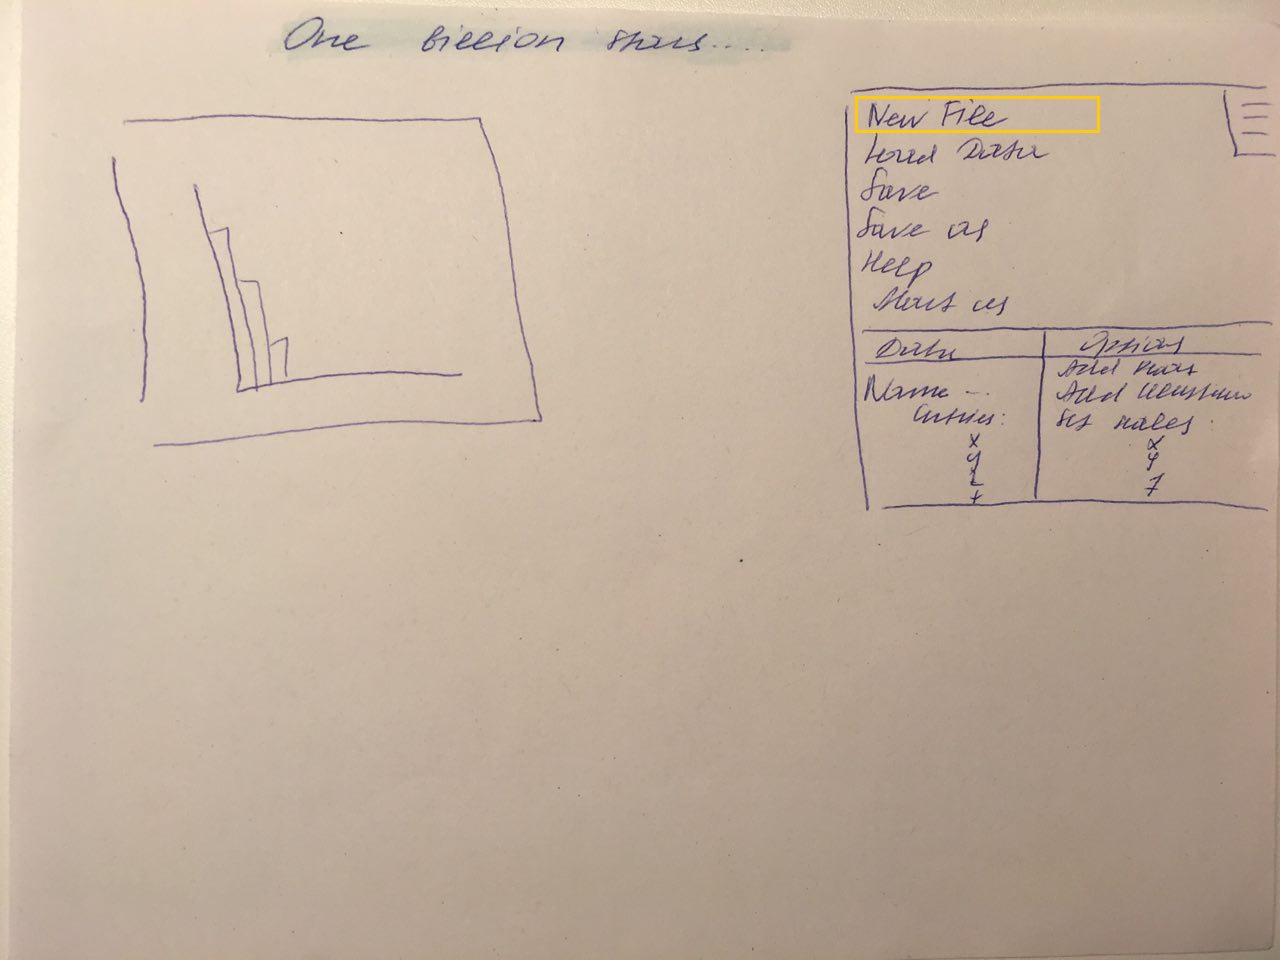 One billion stars....
New File
Load Data
Save
Save as
Help
Start as
Data
Options
Name ...
Entries:
x
y
z
+
Add Plot
Add
Set scales:
x
y
z